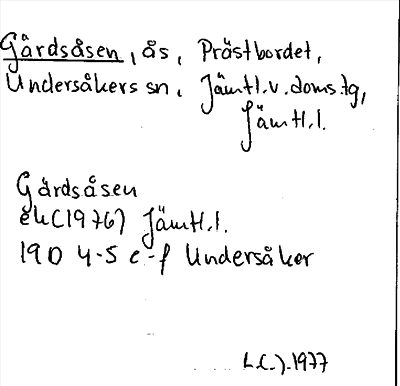 Gårdsåsen, ås, Prästbordet,
Undersåkers sn, Jämtl.v.doms.tg,
Jämtl.l.
Gårdsåsen
ek(1976) Jämtl.l.
19D 4-5 e-f Undersåker
1977